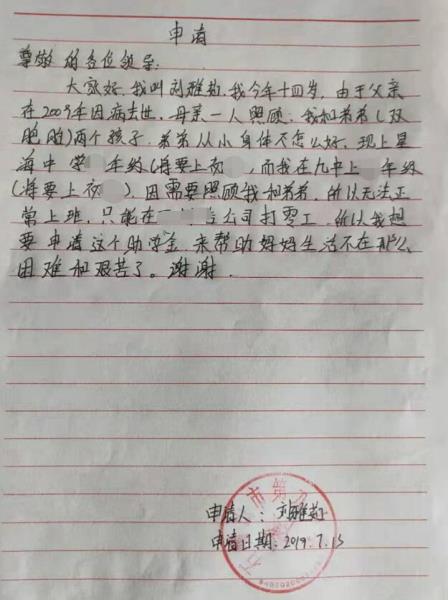 申请
尊敬的各位领导:
大家好,我叫刘雅茹,我今年十四岁,由于父亲
在2009年因病去世,母亲一人照顾,我和弟弟(双
胞胎)两个孩子.弟弟从小身体不怎么好,现上星
海中学 年级(将要上初 ,而我在九中上 年级
(将要上初 ) 因需要照顾我和弟弟,所以无法正
常上班,只能在 公司打零工,所以我想
要申请这个助学金,来帮助妈妈生活不在那么
困难和艰苦了。谢谢.
市第九
申请人:刘雅茹
申请日期:2019.7.15